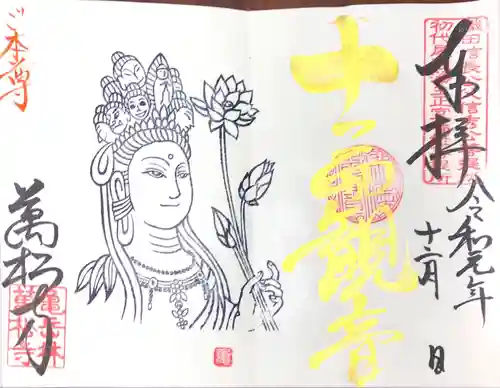 奉拝
令和元年
十二月 日
十一面観音
ご本尊
萬松寺
亀岳林
萬松寺